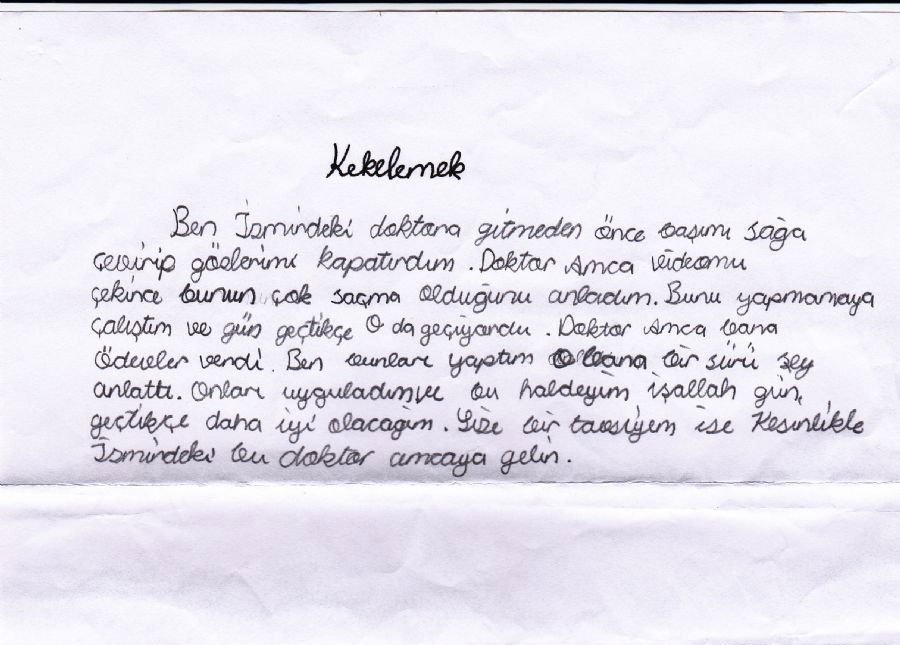 Kekelemek
Ben İzmirdeki doktora gitmeden önce başımı sağa
çevirip gözlerimi kapatırdım. Doktor Amca videomu
çekince bunun çok saçma olduğunu anladım. Bunu yapmamaya
çalıştım ve gün geçtikçe O da geçiyordu. Doktor Amca bana
Ödevler verdi. Ben bunları yaptım O bana bir sürü şey
anlattı. Onları uyguladım ve bu haldeyim işallah gün
geçtikçe daha iyi olacağım. Size bir tavsiyem ise Kesinlikle
İzmirdeki bu doktor amcaya gelin.